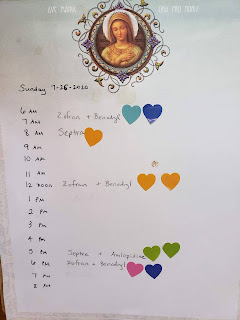 AVE MARIA
Sunday 7-26-2020
6 AM Zofran + Benadryl
7 AM
8 AM Septra
9 AM
10 AM
11 AM
12 noon Zofran + Benadryl
1 PM
2 PM
3 PM
4 PM
5 PM Septra + Amlodipine
6 PM Zofran + Benadryl
7 PM
8 PM